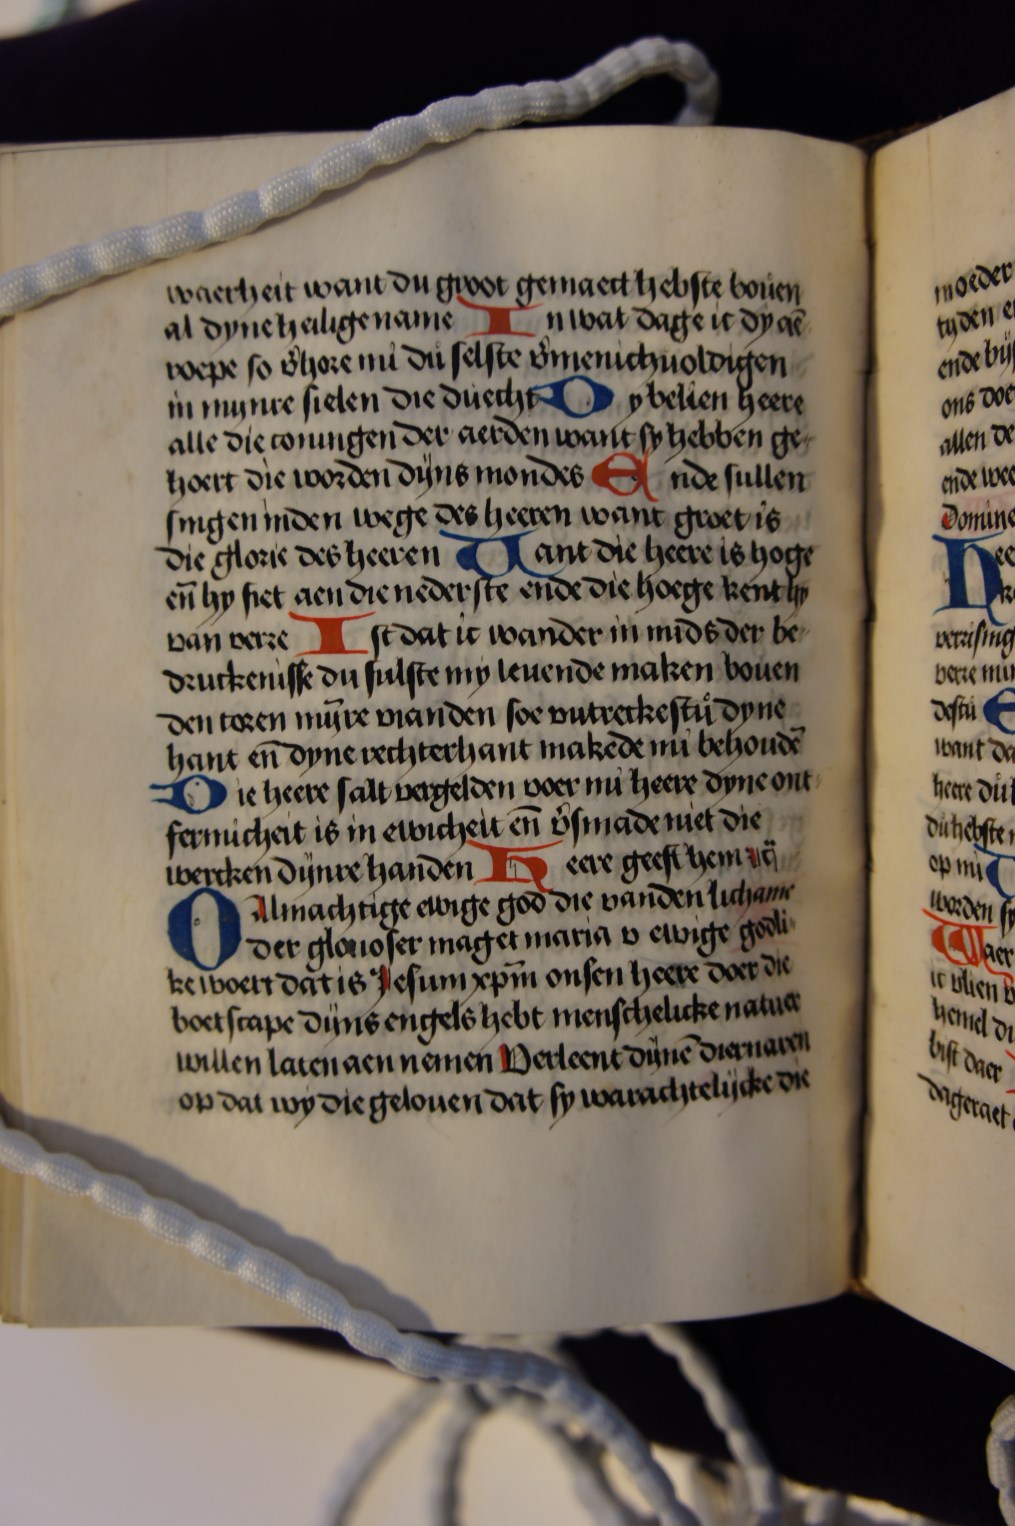 waerheit want du groot gemaect hebste bouen
al dyne heilige name In wat dage ic dy aē
roepe so v̾hore mi du selste v̾menichuoldigen
in mynre sielen die duecht Dy belien heere
alle die coningen der aerden want sy hebben ge-
hoert die worden dijns mondes Ende sullen
singen inden wege des heeren want groet is
die glorie des heeren Want die heere is hoge
en̄ hy siet aen die nederste ende die hoege kent hy
van verre Ist dat ic wander in mids der be-
druckenisse du sulste my leuende maken bouen
den toren mijn̄re vianden soe wtreckestu dyne
hant en̄ dyne rechterhant makede mi behoudē
Die heere salt vergelden voer mi heere dyne ont-
fermicheit is in ewicheit en̄ v̾smade niet die
wercken dijnre handen Heere geeft hem
O Almachtige ewige god die vanden lichame
der glorioser maget maria v ewige godli-
ke woert dat is Jesum xpm̄ onsen heere doer die
boetscape dijns engels hebt menschelicke natuer
willen laten aen nemen Verleent dijnē diernaren
op dat wy die gelouen dat sy warachtelijcke die
moeder
tyden
ende
ons doe
allen de
ende wee
Domine
Hee
verrising
verre
destu E
want
heere
du hebste
op mi
worden sy
Waer
ic vlien
hemel
bist daer
dageraet